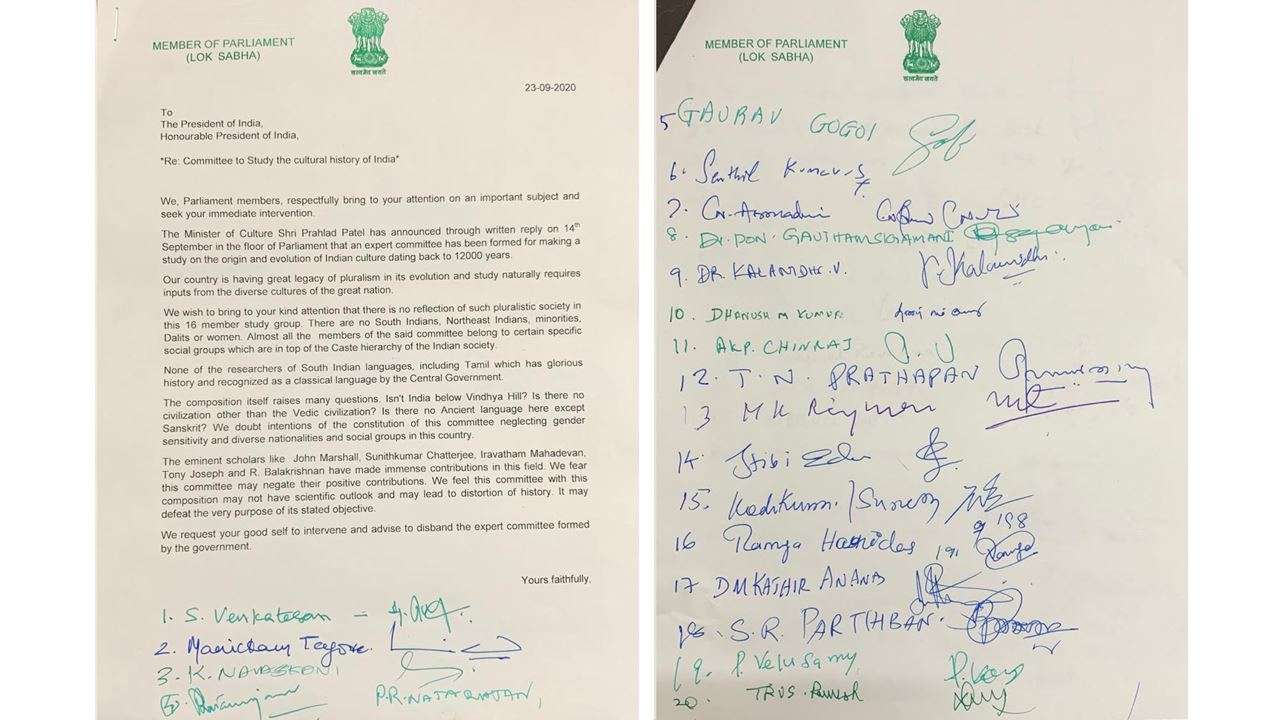 MEMBER OF PARLIAMENT
(LOK SABHA)
सत्यमेव जयते
23-09-2020
To
The President of India,
Honourable President of India,
"Re: Committee to Study the cultural history of India"
We, Parliament members, respectfully bring to your attention on an important subject and
seek your immediate intervention.
The Minister of Culture Shri Prahlad Patel has announced through written reply on 14th
September in the floor of Parliament that an expert committee has been formed for making a
study on the origin and evolution of Indian culture dating back to 12000 years.
Our country is having great legacy of pluralism in its evolution and study naturally requires
inputs from the diverse cultures of the great nation.
We wish to bring to your kind attention that there is no reflection of such pluralistic society in
this 16 member study group. There are no South Indians, Northeast Indians, minorities,
Dalits or women. Almost all the members of the said committee belong to certain specific
social groups which are in top of the Caste hierarchy of the Indian society.
None of the researchers of South Indian languages, including Tamil which has glorious
history and recognized as a classical language by the Central Government.
The composition itself raises many questions. Isn't India below Vindhya Hill? Is there no
civilization other than the Vedic civilization? Is there no Ancient language here except
Sanskrit? We doubt intentions of the constitution of this committee neglecting gender
sensitivity and diverse nationalities and social groups in this country.
The eminent scholars like John Marshall, Sunithkumar Chatterjee, Iravatham Mahadevan,
Tony Joseph and R. Balakrishnan have made immense contributions in this field. We fear
this committee may negate their positive contributions. We feel this committee with this
composition may not have scientific outlook and may lead to distortion of history. It may
defeat the very purpose of its stated objective.
We request your good self to intervene and advise to disband the expert committee formed
by the government.
Yours faithfully,
1. S. Venkatesan -
2. Manickam Tagore.
3. K. NAVASKANI
P.R. NATARAJAN,
MEMBER OF PARLIAMENT
(LOK SABHA)
सत्यमेव जयते
5 GAURAV GOGOI
6. Senthil Kumar. S
7.
8. Dr. DON. GAUTHAMSIGAMANI
9. DR. KALANIDHI. V. V. Kalanidhi
10. DHANUSH M KUMAR
11. AKP. CHINRAJ
12. T. N. PRATHAPAN
13 M K
14.
15. Suresh
16 Ramya Haridas
17 DM KATHIR ANAND
18. S. R. PARTHIBAN.
19. P. Velusamy
20.